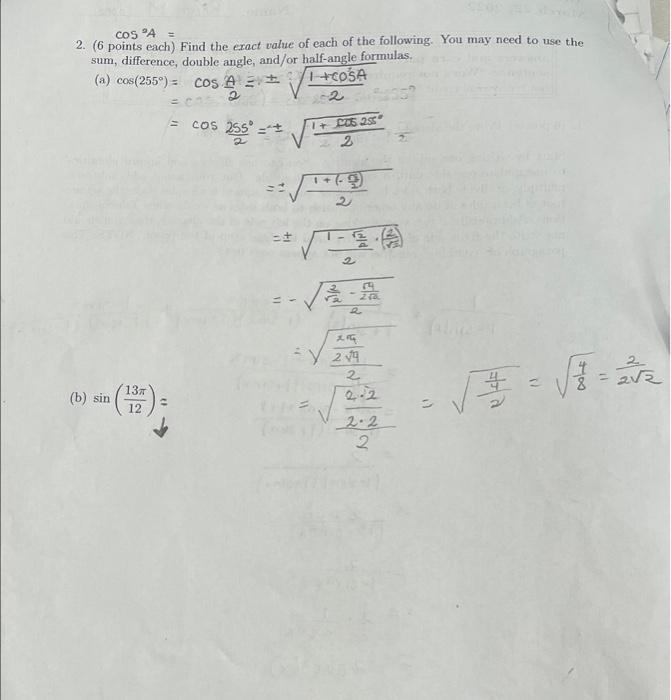 cos °A =
2. (6 points each) Find the exact value of each of the following. You may need to use the
sum, difference, double angle, and/or half-angle formulas.
(a) cos(255°) = cos A/2 = ± √((1 + cos A)/2)
= cos 255°/2 = ± √((1 + cos 255°)/2)
= ± √((1 + (-√3/2))/2)
= ± √((1 - √2/2 · (2/√2))/2)
= - √((2/√2 - √4/2√2)/2)
= √((2√4/2√4)/2)
(b) sin(13π/12) =
= √((2·2/2·2)/2) = √((4/4)/2) = √(4/8) = 2/2√2